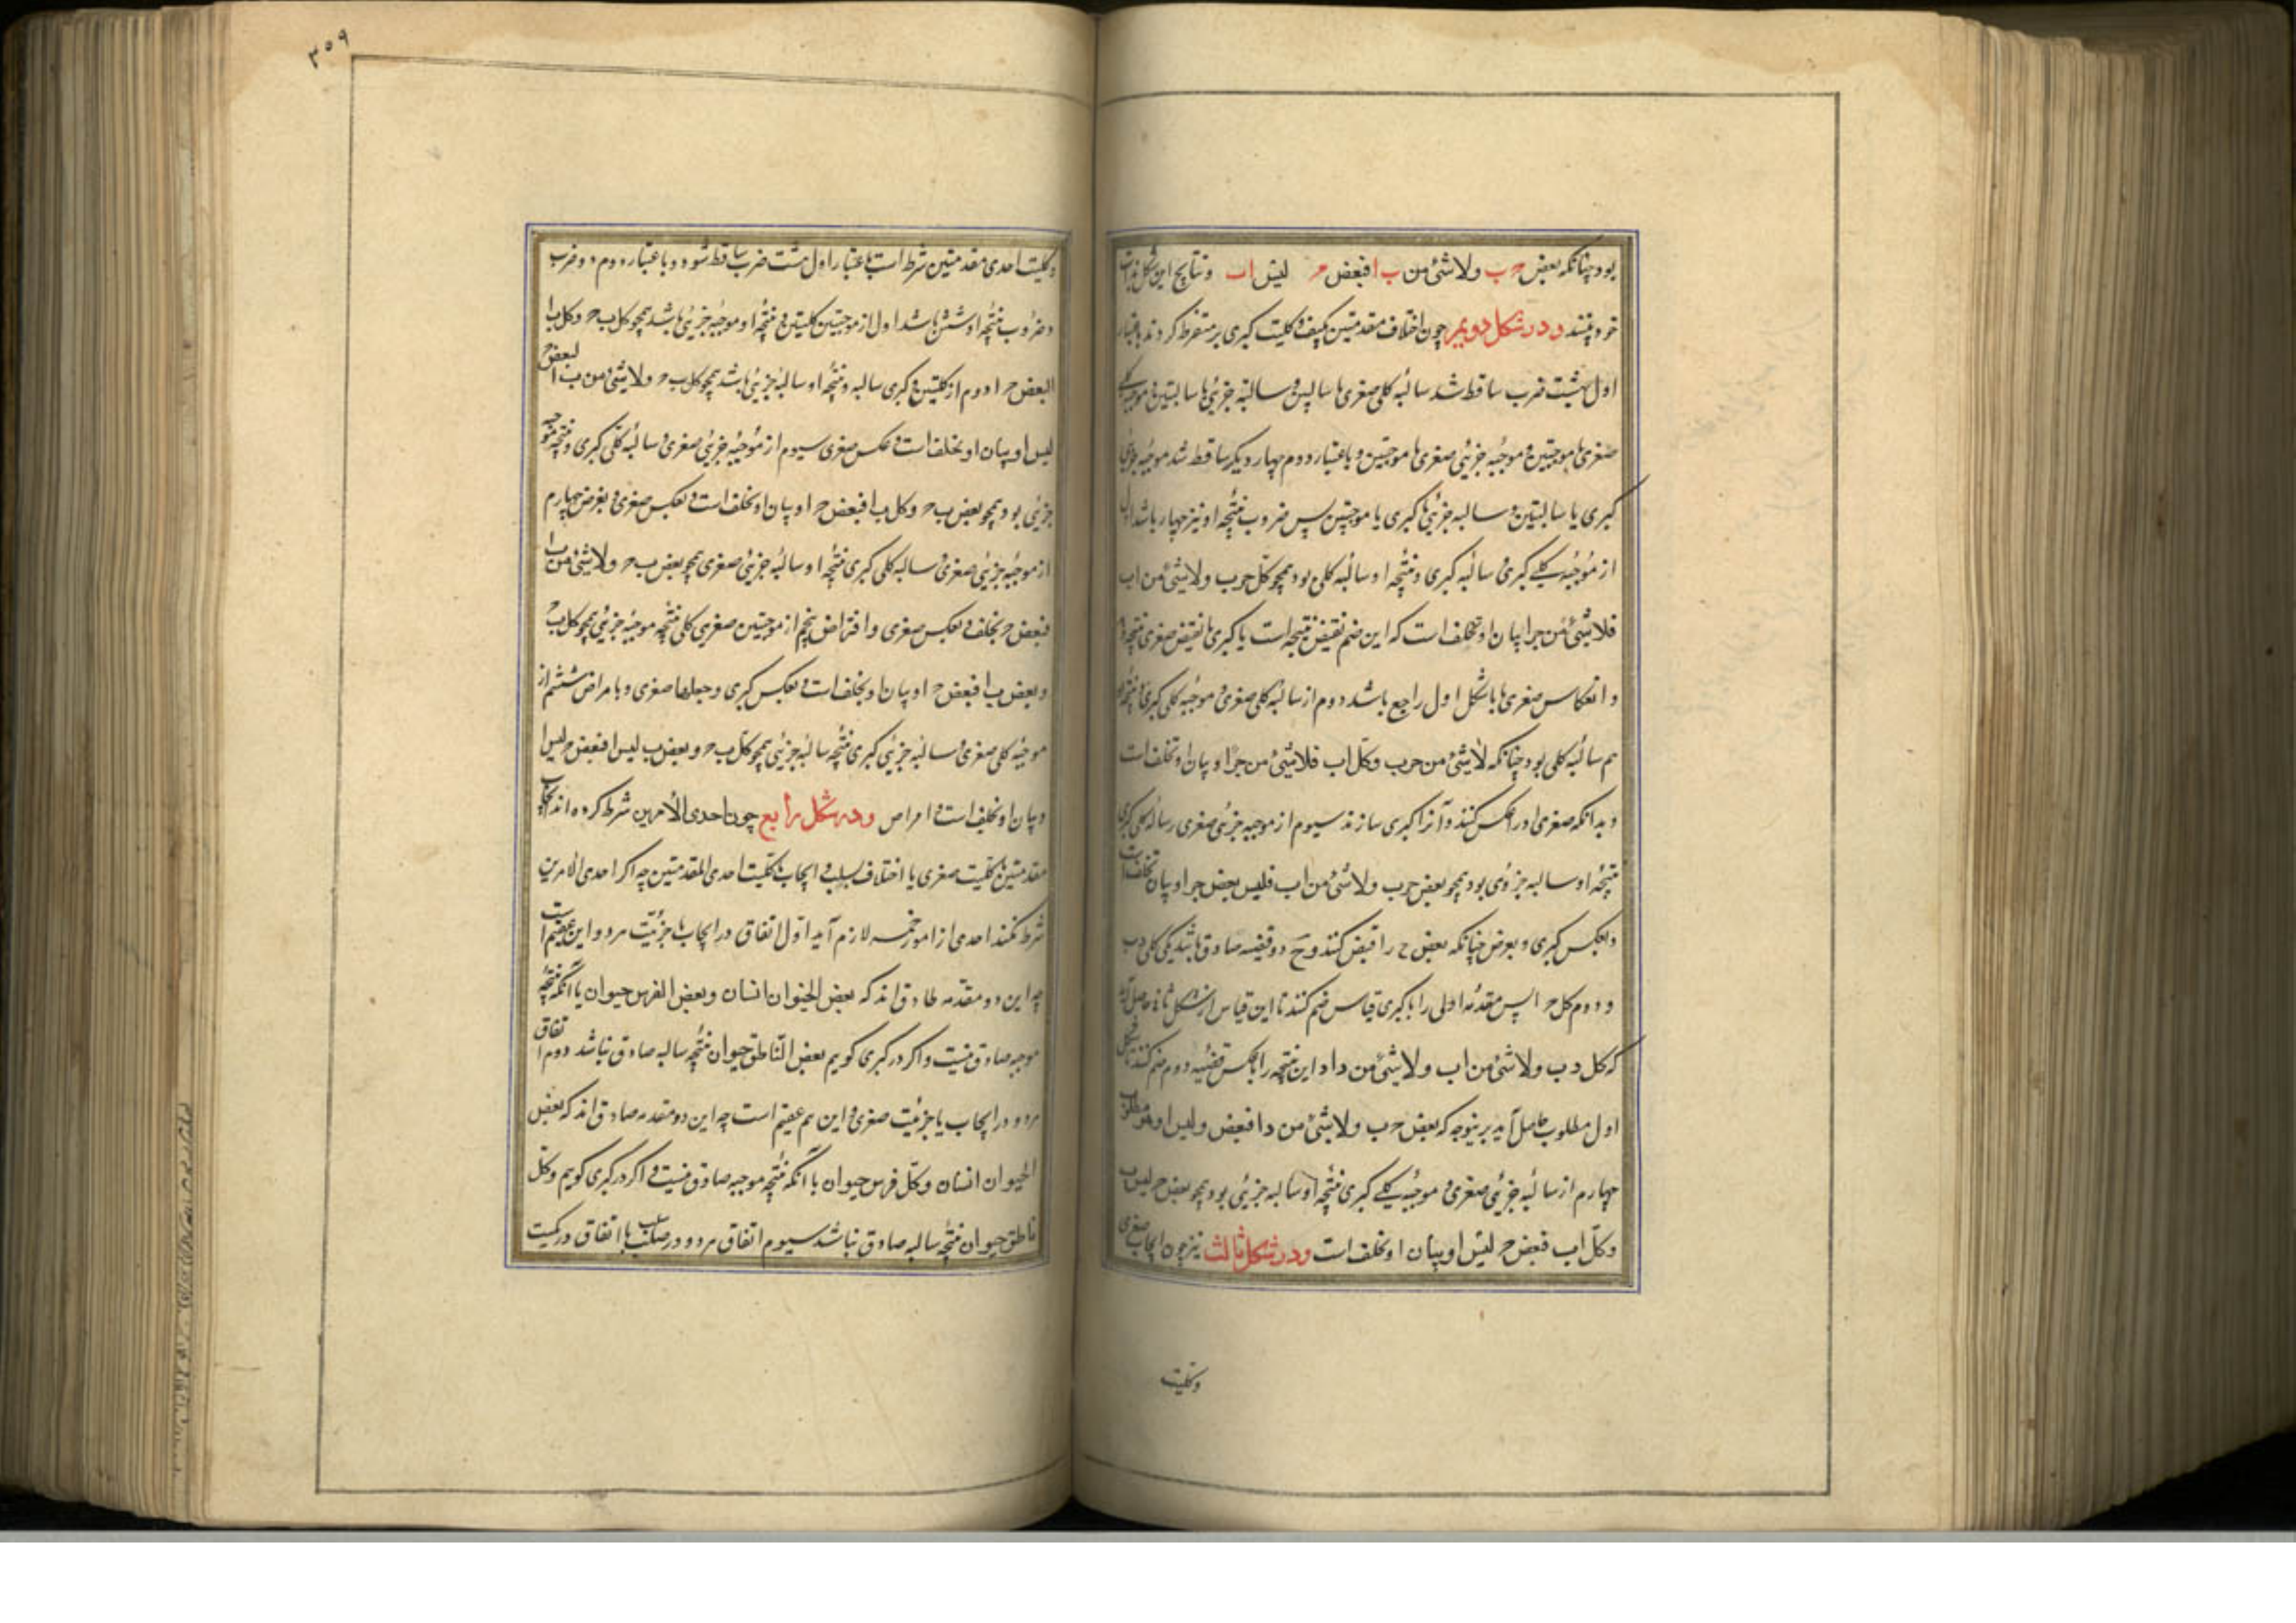 بود چنانکه بعض ح ب ولا شئ من ب ا فبعض ح لیس ا ب و نتایج این شکل بذات
خود بینند و در شکل دویم چون اختلاف مقدمتین بکیف و کلیت کبری بر متفرط کردند باعتبار
اول هشت ضرب ساقط شد سالبه کلی صغری با سالبتین و سالبه جزئی با سالبتین و موجبه کلی
صغری با موجبتین و موجبه جزئی صغری با موجبتین و باعتبار دوم چهار دیگر ساقط شد موجبه جزئی
کبری با سالبتین و سالبه جزئی کبری با موجبتین پس ضروب منتجه او نیز چهار باشد اول
از موجبه کلی کبری سالبه کبری و نتیجه او سالبه کلی بود همچو کل ج ب ولا شئ من ا ب
فلا شئ من ج ا و بیان او بخلف است که این ضم نقیض نتیجه است با کبری تا نقیض صغری نتیجه دهد
و انعکاس صغری تا با شکل اول راجع باشد دوم از سالبه کلی صغری و موجبه کلی کبری و نتیجه
هم سالبه کلی بود چنانکه لا شئ من ج ب و کل ا ب فلا شئ من ج ا و بیان او بخلف است
و بدانکه صغری او را عکس کنند و آنرا کبری سازند سیوم از موجبه جزئی صغری و سالبه کلی کبری
نتیجه او سالبه جزوی بود همچو بعض ج ب ولا شئ من ا ب فلیس بعض ج ا و بیان بخلف است
و بعکس کبری و بعرض چنانکه بعض ج را قبض کنند و ح دو قضیه صادق باشد یکی کل د ب
و دوم کل ح ا پس مقدمه اولی را با کبری قیاس ضم کنند تا این قیاس از شکل ثانی حاصل آید
که کل د ب ولا شئ من ا ب ولا شئ من د ا و این نتیجه را بعکس قضیه دوم ضم کنند تا شکل
اول مطلوب حاصل آید برینوجه که بعض ح ب ولا شئ من د ا فبعض و لیس ا و هو مطلوب
چهارم از سالبه جزئی صغری و موجبه کلی کبری نتیجه او سالبه جزئی بود همچو بعض ح لیس ب
و کل ا ب فبعض ح لیس ا و بیان او بخلف است و در شکل ثالث نیز چون ایجاب صغری
وکلیت
۳۵۹
و کلیت احدی مقدمتین شرط است باعتبار اول هشت ضرب ساقط شود و باعتبار دوم دو ضرب
و ضروب منتجه او شش باشد اول از موجبتین کلیتین و نتیجه او موجبه جزئی باشد همچو کل ب ح و کل ب ا
فبعض ح ا دوم از کلیتین و کبری سالبه و نتیجه او سالبه جزئی باشد همچو کل ب ح ولا شئ من ب ا فبعض ح
لیس ا و بیان او بخلف است و عکس صغری سیوم از موجبه جزئی صغری و سالبه کلی کبری و نتیجه موجبه
جزئی بود همچو بعض ب ح و کل ب ا فبعض ح ا و بیان او بخلف است و بعکس صغری و بفرض چهارم
از موجبه جزئی صغری و سالبه کلی کبری نتیجه او سالبه جزئی صغری همچو بعض ب ح ولا شئ من ب ا
فبعض ح بخلف و بعکس صغری و افتراض پنجم از موجبتین صغری کلی نتیجه موجبه جزئی همچو کل ب ح
و بعض ب ا فبعض ح ا و بیان او بخلف است و بعکس کبری و جعلها صغری و بامراض ششم از
موجبه کلی صغری و سالبه جزئی کبری نتیجه سالبه جزئی همچو کل ب ح و بعض ب لیس ا فبعض ح لیس ا
و بیان او بخلف است و امراض و در شکل رابع چون احدی الأمرین شرط کرده اند
مقدمتین با کلیت صغری یا اختلاف بسلب و ایجاب با کلیت احدی المقدمتین چه اگر احدی الامرین
شرط نکنند احدی از امور خمسه لازم آید اول اتفاق در ایجاب با جزئیت هر دو و این عقیم است
چه این دو مقدمه صادق اند که بعض الحیوان انسان و بعض الفرس حیوان با آنکه نتیجه
موجبه صادق نیست و اگر در کبری گویم بعض الناطق حیوان نتیجه سالبه صادق نباشد دوم اتفاق
هر دو در ایجاب با جزئیت صغری و این هم عقیم است چه این دو مقدمه صادق اند که بعض
الحیوان انسان و کل فرس حیوان با آنکه نتیجه موجبه صادق نیست و اگر در کبری گویم و کل
ناطق حیوان نتیجه سالبه صادق نباشد سیوم اتفاق هر دو در سلب با اتفاق در کمیت